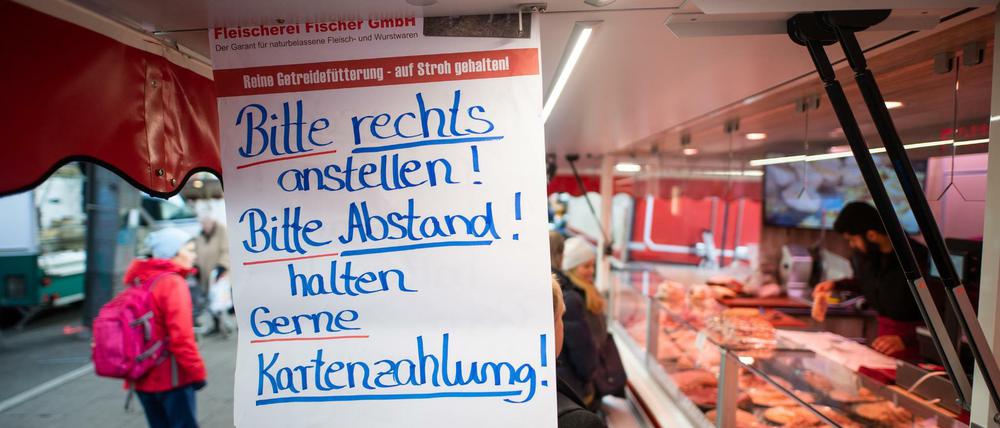 Fleischerei Fischer GmbH
Der Garant für naturbelassene Fleisch- und Wurstwaren
Reine Getreidefütterung - auf Stroh gehalten!
Bitte rechts
anstellen!
Bitte Abstand!
halten
Gerne
Kartenzahlung!